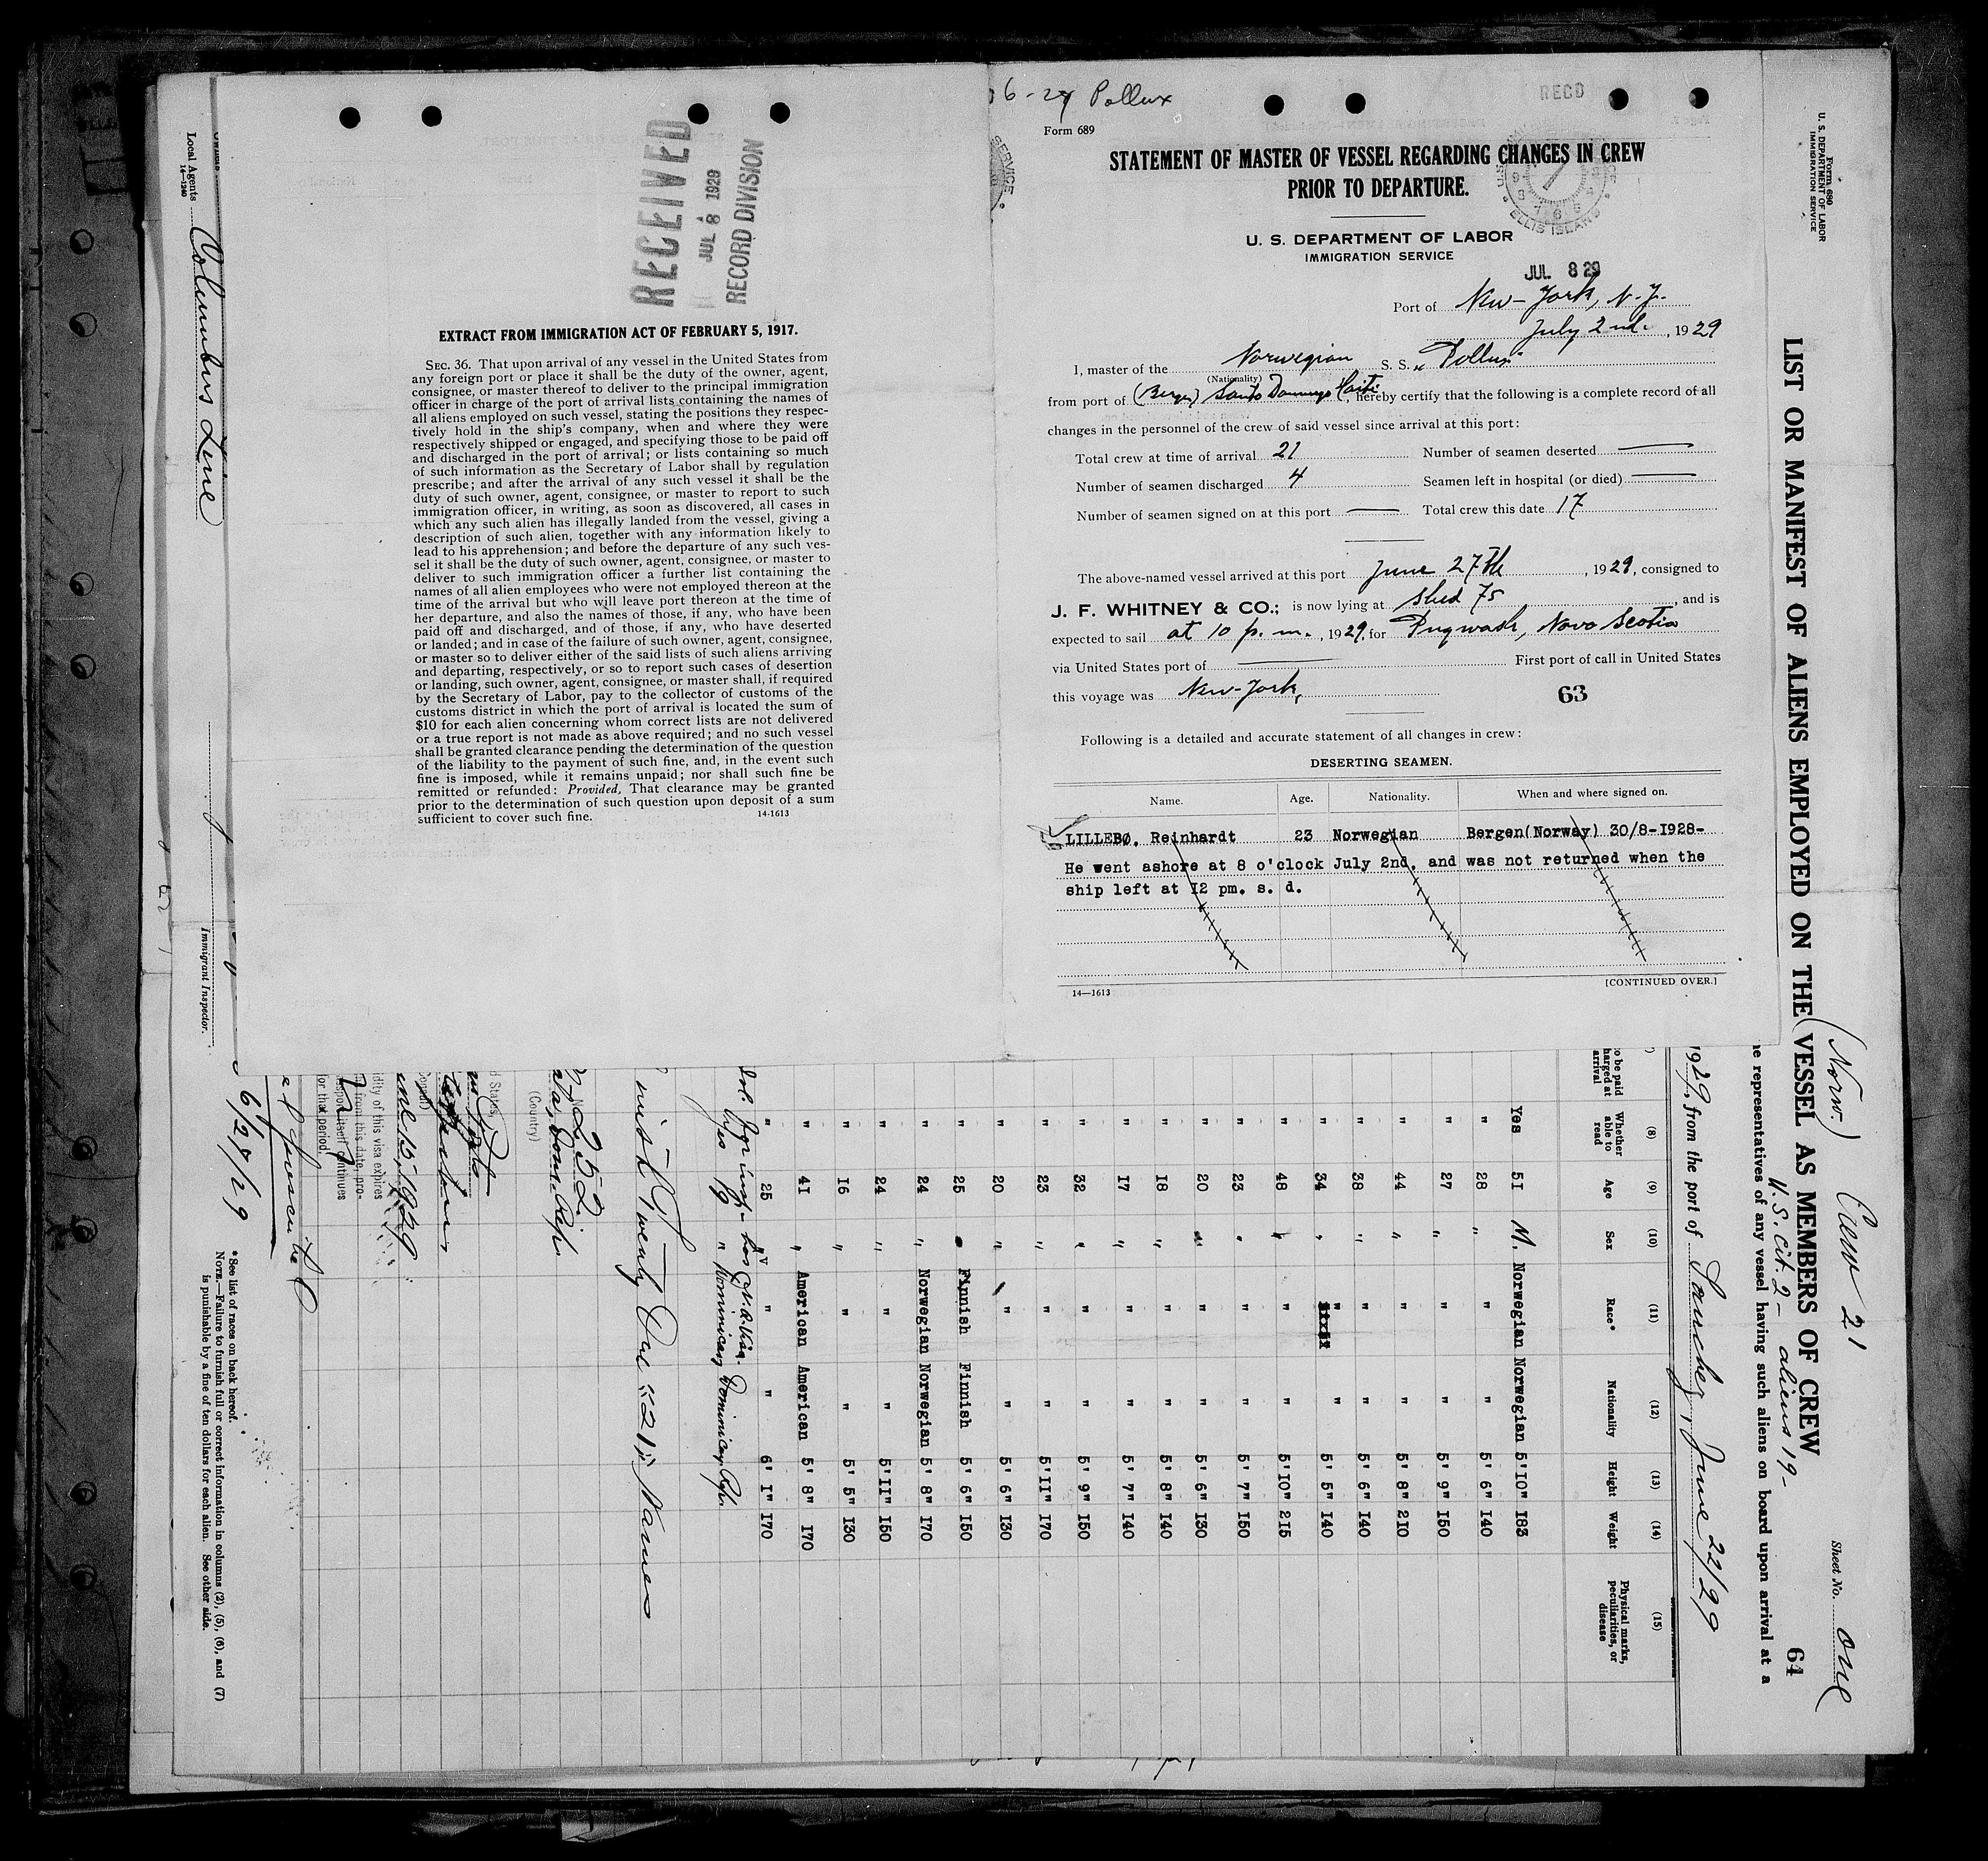 RECEIVED
JUL 8 1929
RECORD DIVISION
EXTRACT FROM IMMIGRATION ACT OF FEBRUARY 5, 1917.
SEC. 36. That upon arrival of any vessel in the United States from
any foreign port or place it shall be the duty of the owner, agent,
consignee, or master thereof to deliver to the principal immigration
officer in charge of the port of arrival lists containing the names of
all aliens employed on such vessel, stating the positions they respec-
tively hold in the ship's company, when and where they were
respectively shipped or engaged, and specifying those to be paid off
and discharged in the port of arrival; or lists containing so much
of such information as the Secretary of Labor shall by regulation
prescribe; and after the arrival of any such vessel it shall be the
duty of such owner, agent, consignee, or master to report to such
immigration officer, in writing, as soon as discovered, all cases in
which any such alien has illegally landed from the vessel, giving a
description of such alien, together with any information likely to
lead to his apprehension; and before the departure of any such ves-
sel it shall be the duty of such owner, agent, consignee, or master to
deliver to such immigration officer a further list containing the
names of all alien employees who were not employed thereon at the
time of the arrival but who will leave port thereon at the time of
her departure, and also the names of those, if any, who have been
paid off and discharged, and of those, if any, who have deserted
or landed; and in case of the failure of such owner, agent, consignee,
or master so to deliver either of the said lists of such aliens arriving
and departing, respectively, or so to report such cases of desertion
or landing, such owner, agent, consignee, or master shall, if required
by the Secretary of Labor, pay to the collector of customs of the
customs district in which the port of arrival is located the sum of
$10 for each alien concerning whom correct lists are not delivered
or a true report is not made as above required; and no such vessel
shall be granted clearance pending the determination of the question
of the liability to the payment of such fine, and, in the event such
fine is imposed, while it remains unpaid; nor shall such fine be
remitted or refunded: Provided, That clearance may be granted
prior to the determination of such question upon deposit of a sum
sufficient to cover such fine.
14-1613
6-27 Pollux
RECD
Form 689
STATEMENT OF MASTER OF VESSEL REGARDING CHANGES IN CREW
PRIOR TO DEPARTURE.
ELLIS ISLAND
U. S. DEPARTMENT OF LABOR
IMMIGRATION SERVICE
JUL 8 29
Port of New-York, N.Y.
July 2nd. , 1929
I, master of the Norwegian S. S. "Pollux"
(Nationality)
from port of (Bergen) Santo Domingo Haiti, hereby certify that the following is a complete record of all
changes in the personnel of the crew of said vessel since arrival at this port:
Total crew at time of arrival 21 Number of seamen deserted
Number of seamen discharged 4 Seamen left in hospital (or died)
Number of seamen signed on at this port Total crew this date 17
The above-named vessel arrived at this port June 27th , 1929, consigned to
J. F. WHITNEY & CO.; is now lying at shed 75 , and is
expected to sail at 10 p.m. , 1929, for Pugwash, Nova Scotia
via United States port of First port of call in United States
this voyage was New-York,
63
Following is a detailed and accurate statement of all changes in crew:
DESERTING SEAMEN.
Name. Age. Nationality. When and where signed on.
LILLEBØ, Reinhardt 23 Norwegian Bergen(Norway) 30/8-1928-
He went ashore at 8 o'clock July 2nd. and was not returned when the
ship left at 12 pm. s. d.
14—1613
[CONTINUED OVER.]
Form 680
U. S. DEPARTMENT OF LABOR
IMMIGRATION SERVICE
(Norw.) Crew 21
U.S. cit. 2 - aliens 19-
Sheet No. one
LIST OR MANIFEST OF ALIENS EMPLOYED ON THE VESSEL AS MEMBERS OF CREW
64
representatives of any vessel having such aliens on board upon arrival at a
1929, from the port of Sanchez, June 22/29
(8) (9) (10) (11) (12) (13) (14) (15)
to be paid
arrival
Whether able to read Age Sex Race* Nationality Height Weight Physical marks, peculiarities, or disease
Yes 51 M. Norwegian Norwegian 5'10" 183
" 28 " " " 5' 6" 140
" 27 " " " 5' 9" 150
" 44 " " " 5' 8" 210
" 38 " " " 5' 6" 140
" 34 " " " 5' 5" 140
" 48 " " " 5'10" 215
" 23 " " " 5' 7" 150
" 20 " " " 5' 6" 130
" 18 " " " 5' 8" 140
" 17 " " " 5' 7" 140
" 32 " " " 5' 9" 150
" 23 " " " 5'11" 170
" 20 " " " 5' 6" 130
" 25 " Finnish Finnish 5' 6" 150
" 24 " Norwegian Norwegian 5' 8" 170
" 24 " " " 5'11" 150
" 16 " " " 5' 5" 130
" 41 " American American 5' 8" 170
" 25 " " " 6' 1" 170
Yes 19 " Dominican Dominican Rep.
with Twenty One "21" Names
No. 252
Dom. Rep.
(Country)
June 15, 1929
validity of this visa expires
from this date, pro-
passport itself continues
for that period.
6/27/29
*See list of races on back hereof.
NOTE.—Failure to furnish full or correct information in columns (2), (5), (6), and (7)
is punishable by a fine of ten dollars for each alien. See other side.
Immigrant Inspector.
Local Agents Columbus Line
14—1240